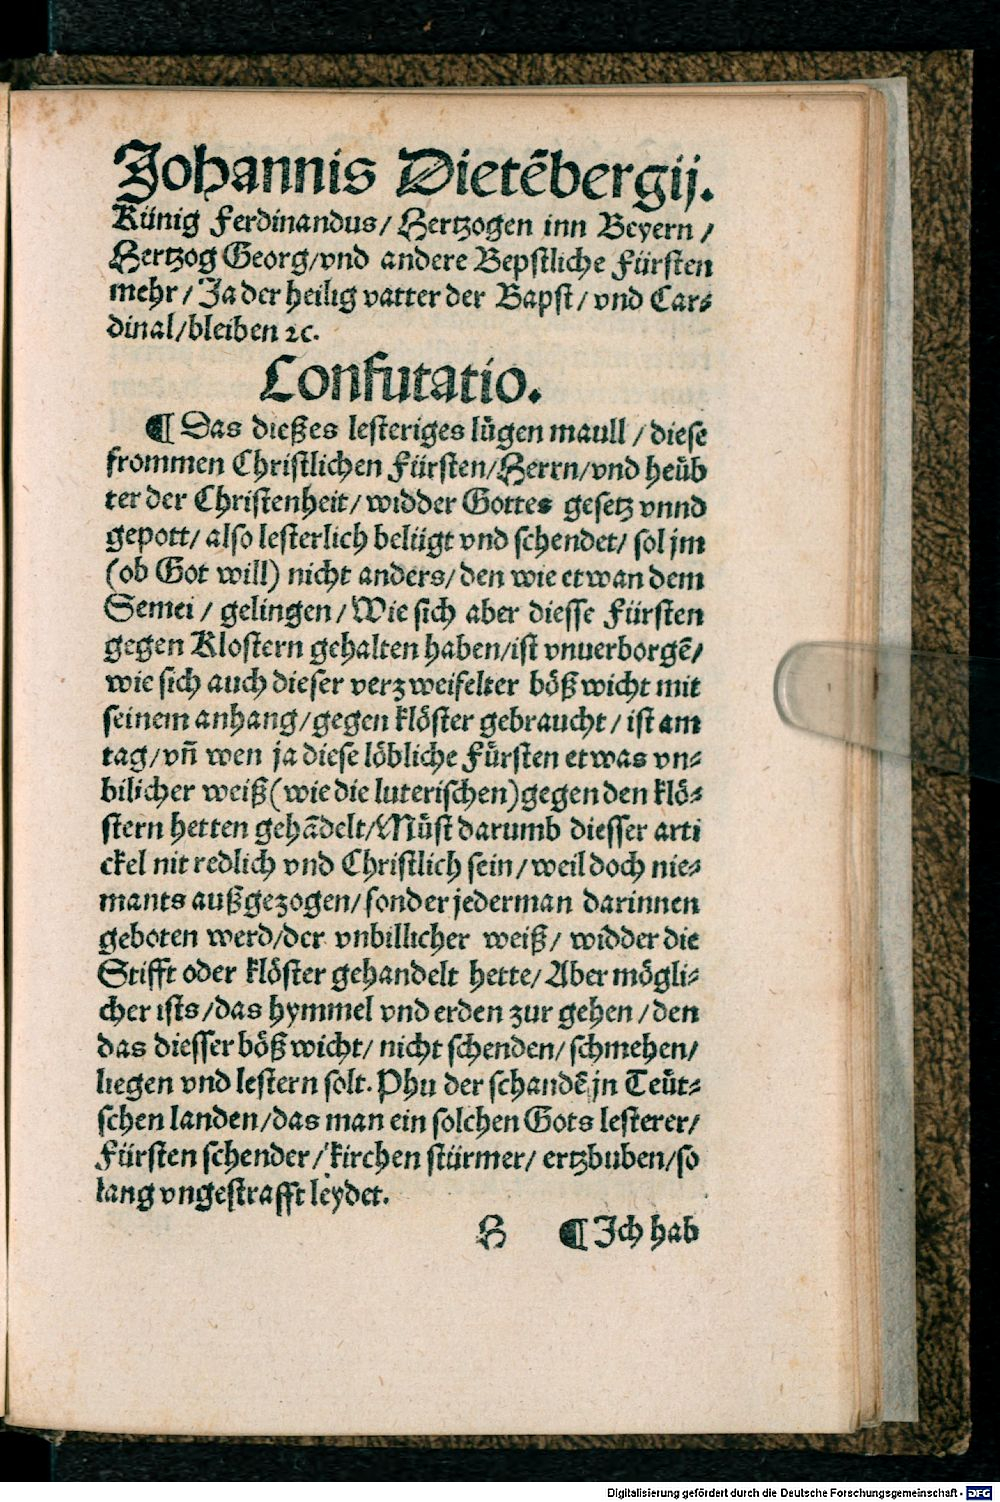 Johannis Dietēbergij.
Künig Ferdinandus/ Hertzogen inn Beyern/
Hertzog Georg/vnd andere Bepstliche Fürsten
mehr/ Ja der heilig vatter der Bapst/ vnd Car⸗
dinal/bleiben ꝛc.
Confutatio.
¶ Das dießes lesteriges lügen maull/diese
frommen Christlichen Fürsten/Herrn/vnd heüb
ter der Christenheit/ widder Gottes gesetz vnnd
gepott/ also lesterlich belügt vnd schendet/ sol jm
(ob Got will) nicht anders/ den wie etwan dem
Semei/ gelingen/ Wie sich aber diesse Fürsten
gegen Klostern gehalten haben/ist vnuerborgē/
wie sich auch dieser verzweifelter bößwicht mit
seinem anhang/gegen klöster gebraucht/ ist am
tag/vñ wen ja diese löbliche Fürsten etwas vn⸗
bilicher weiß(wie die luterischen)gegen den klö⸗
stern hetten gehādelt/Müst darumb diesser arti
ckel nit redlich vnd Christlich sein/weil doch nie⸗
mants außgezogen/sonder jederman darinnen
geboten werd/der vnbillicher weiß/ widder die
Stifft oder klöster gehandelt hette/ Aber mögli⸗
cher ists/das hymmel vnd erden zur gehen/den
das diesser bößwicht/ nicht schenden/schmehen/
liegen vnd lestern solt. Phu der schandē jn Teüt⸗
schen landen/das man ein solchen Gots lesterer/
Fürsten schender/kirchen stürmer/ ertzbuben/so
lang vngestrafft leydet.
H ¶ Ich hab
Digitalisierung gefördert durch die Deutsche Forschungsgemeinschaft - DFG